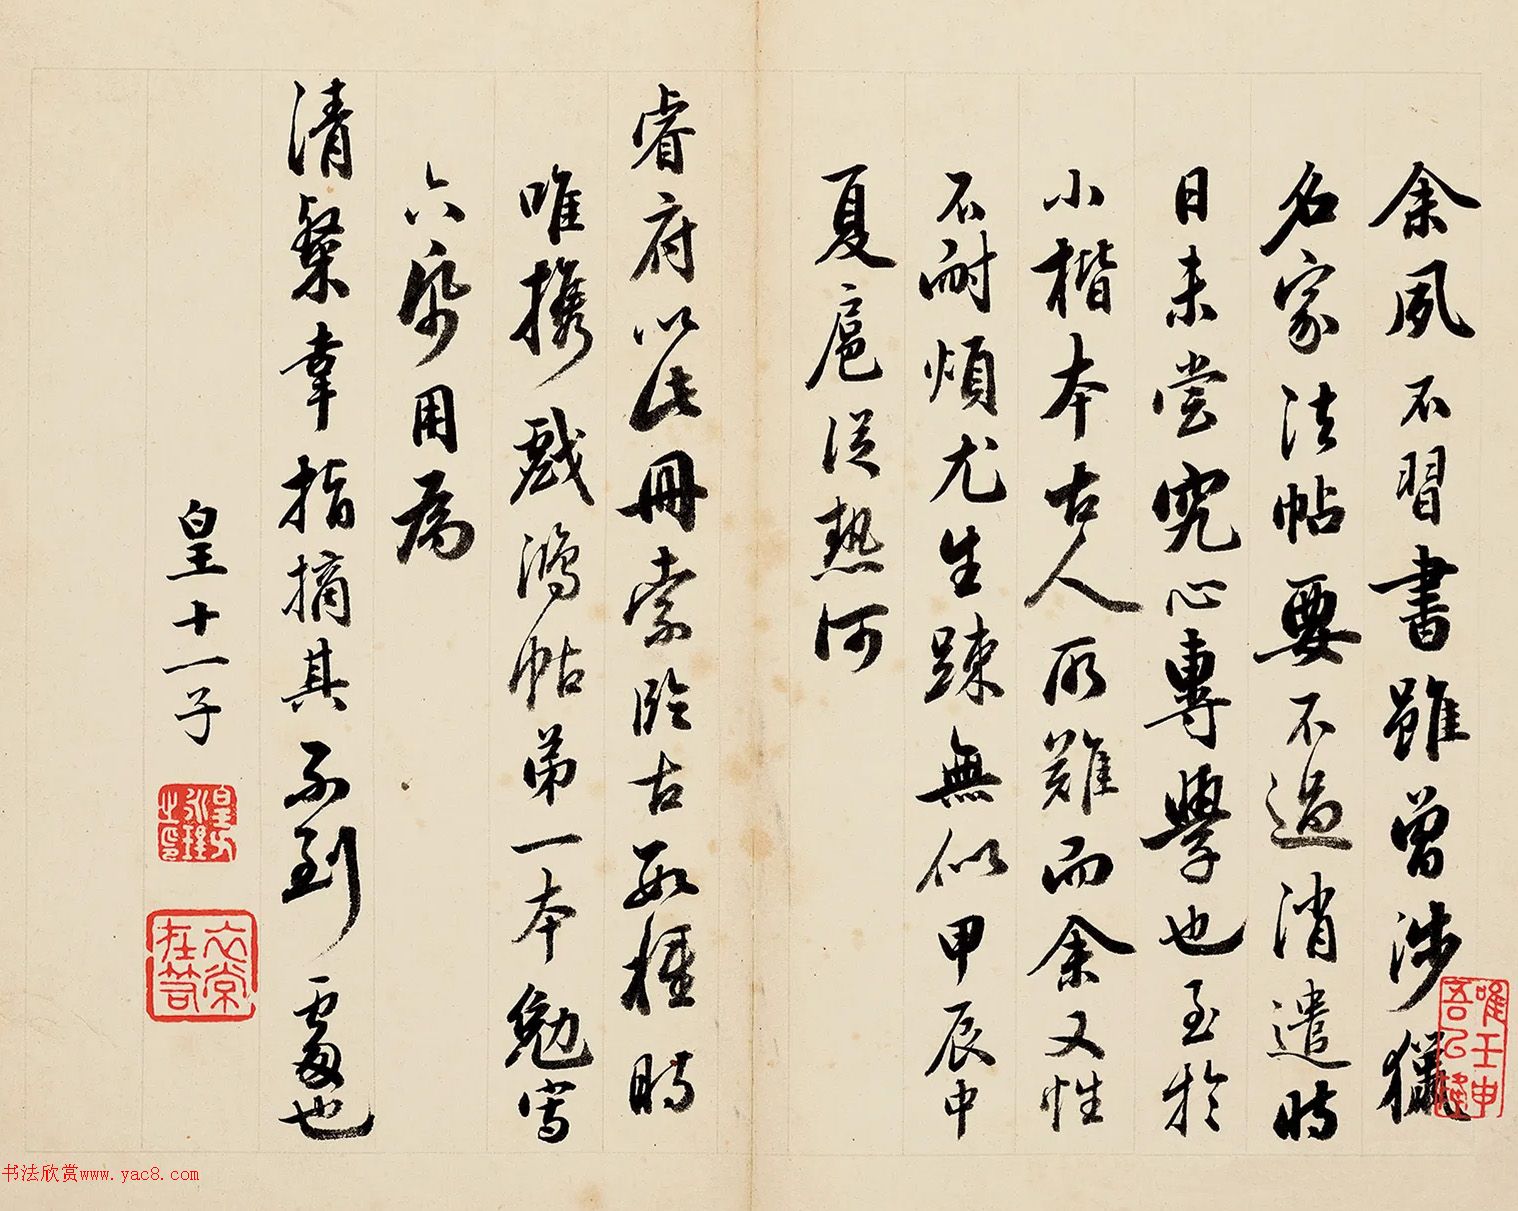 余夙不習書雖曾涉獵
名家法帖要不過消遣時
日未嘗究心專學也至於
小楷本古人所難而余又性
不耐煩尤生踈無似甲辰中
夏扈從熱河
睿府以此冊索臨古數種時
唯攜戲鴻帖第一本勉寫
六帋用為
清粲幸指摘其不到處也
皇十一子
皇十一子永瑆之印
書法欣赏www.yac8.com